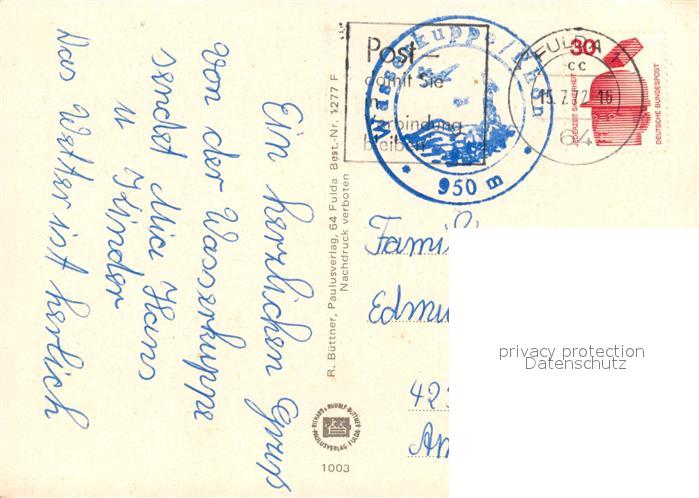 Ein herzlichen Gruß
von der Wasserkuppe
sendet Mia Hans
u Kinder
Das Wetter ist herlich
Post –
damit Sie
in
Verbindung
bleiben
Wasserkuppe/Rhön
* 950 m *
FULDA 1
cc
15.7.72.-16
64
30
JEDERZEIT SICHERHEIT
DEUTSCHE BUNDESPOST
R. Büttner, Paulusverlag, 64 Fulda Best.-Nr. 1277 F
Nachdruck verboten
RICHARD & RUDOLF BÜTTNER
PAULUSVERLAG FULDA
1003
Famil
Edmu
42
Am
privacy protection
Datenschutz